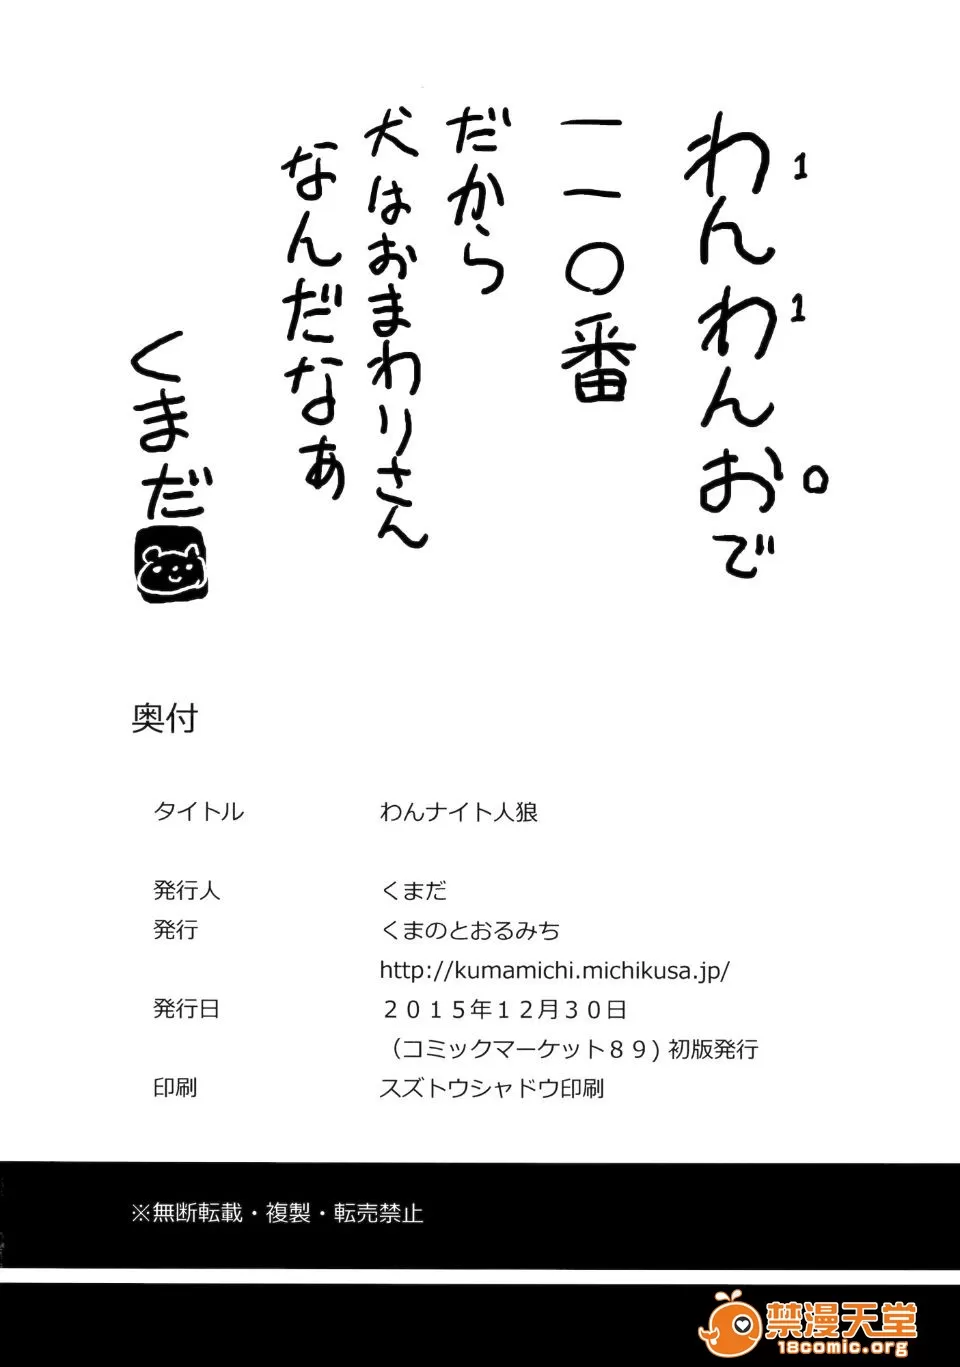 わんわんおで
1 1 0
一一〇番
だから
犬はおまわりさん
なんだなぁ
くまだ
奥付
タイトル わんナイト人狼
発行人 くまだ
発行 くまのとおるみち
http://kumamichi.michikusa.jp/
発行日 2015年12月30日
(コミックマーケット89)初版発行
印刷 スズトウシャドウ印刷
※無断転載・複製・転売禁止
禁漫天堂
18comic.org